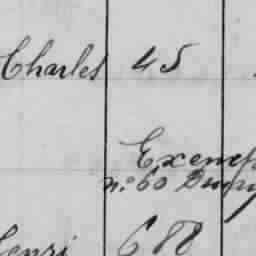 Charles 45
Exemp
n.º 60 Dupuy
Henri 688